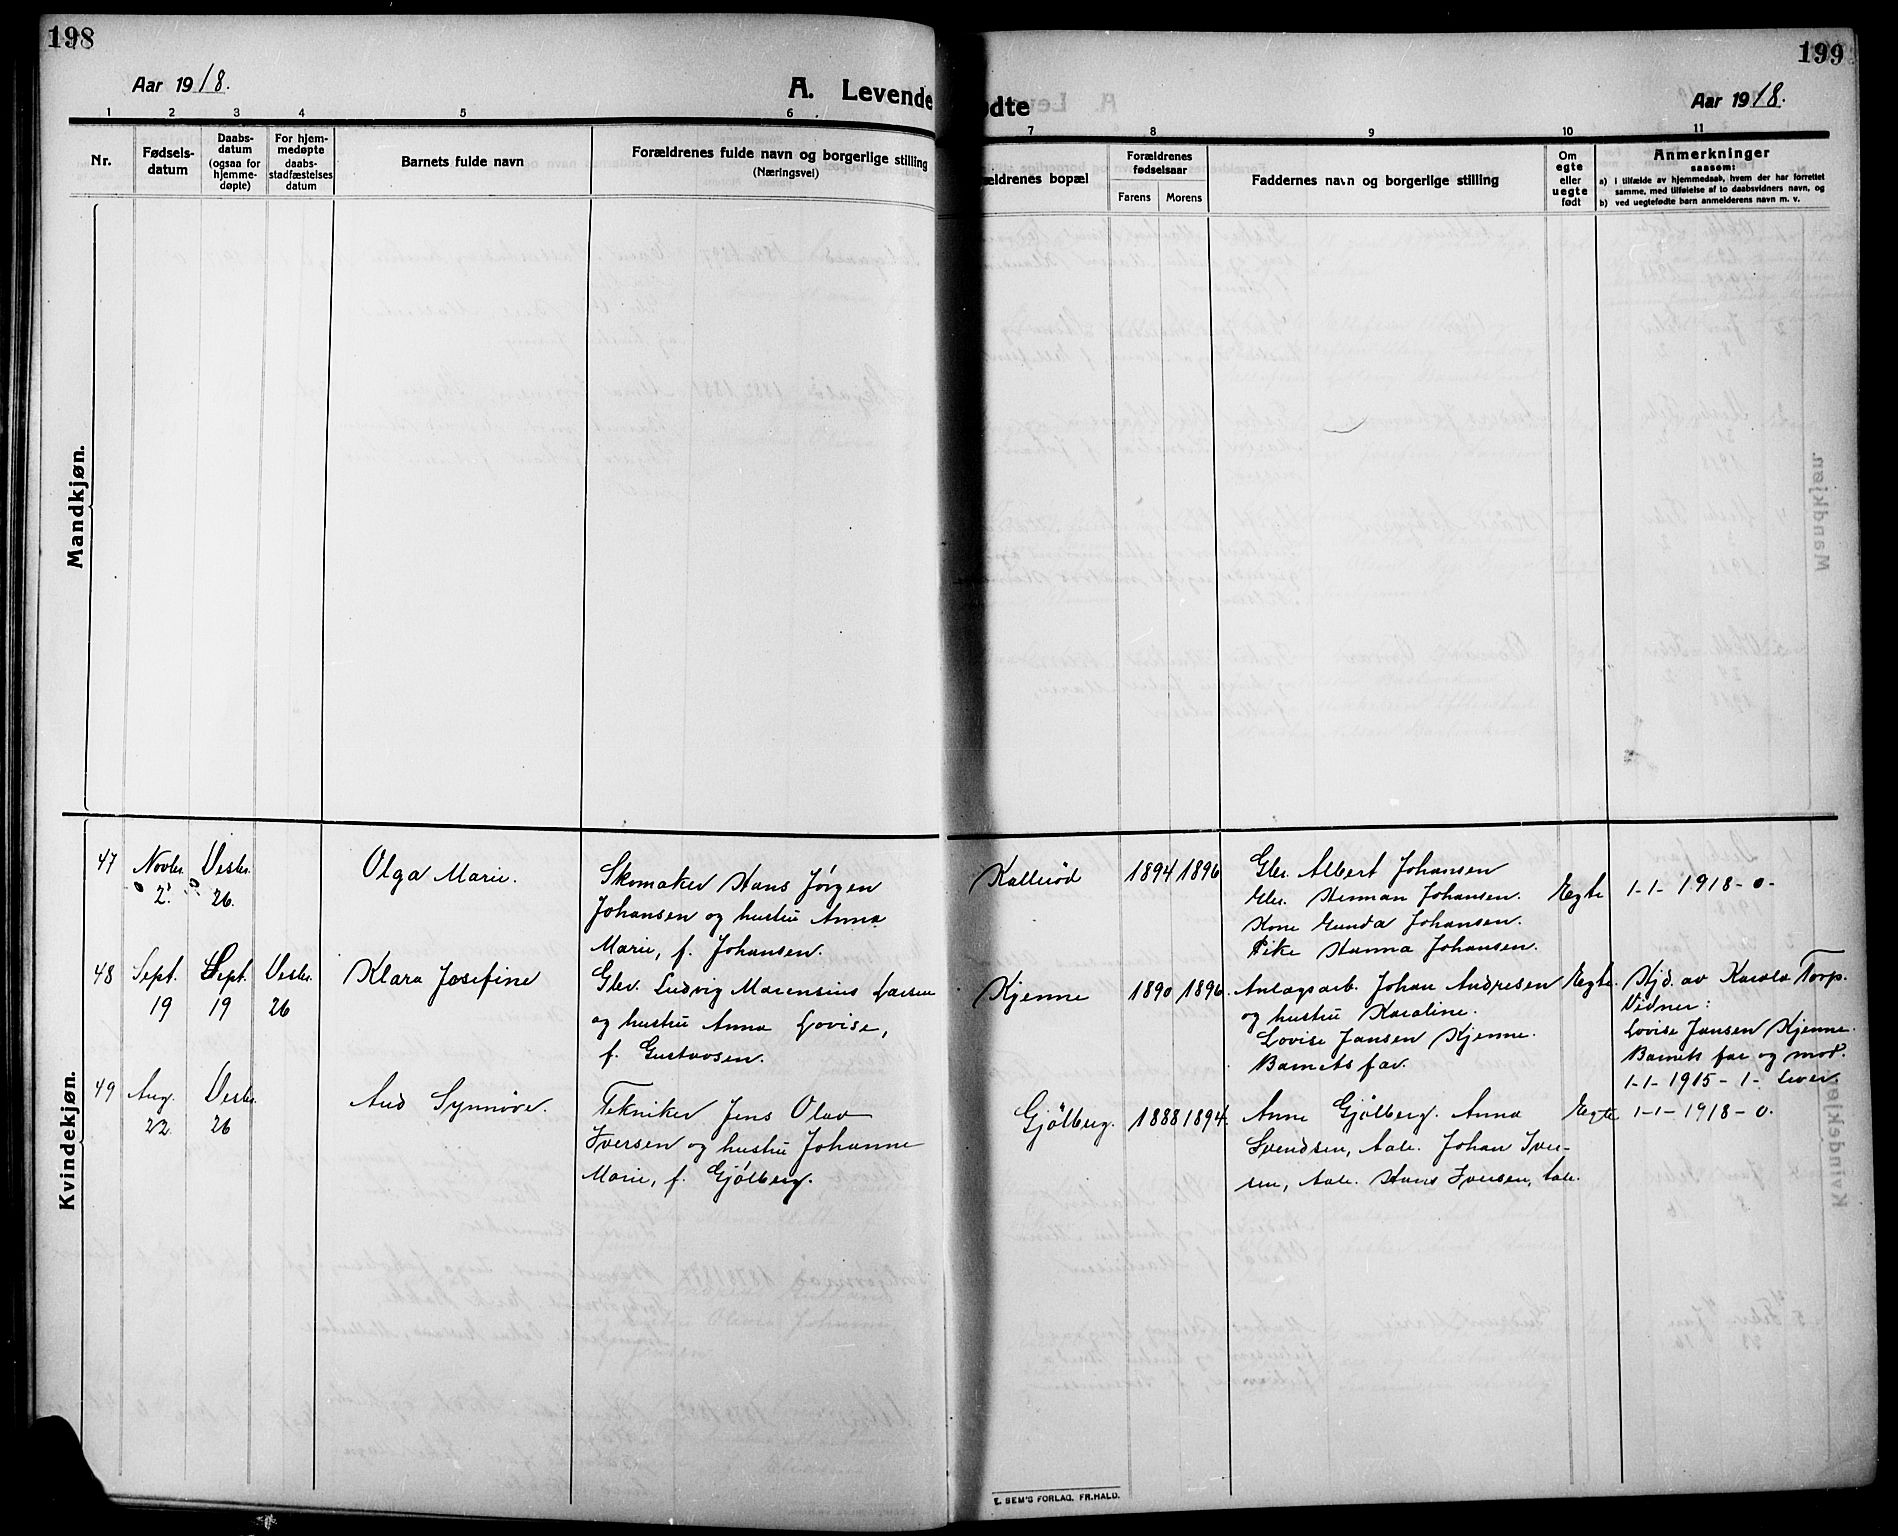 198
199
Aar 1918.
A. Levende
ødte
Aar 1918.
1 2 3 4 5 6 7 8 9 10 11
Nr.
Fødsels-
datum
Daabs-
datum
(ogsaa for
hjemme-
døpte)
For hjem-
medøpte
daabs-
stadfæstelses
datum
Barnets fulde navn
Forældrenes fulde navn og borgerlige stilling
(Næringsvei)
ældrenes bopæl
Forældrenes
fødselsaar
Farens
Morens
Faddernes navn og borgerlige stilling
Om
egte
eller
uegte
født
Anmerkninger
saasom:
a) i tilfælde av hjemmedaab, hvem der har forrettet
samme, med tilføielse af to daabsvidners navn, og
b) ved uegtefødte barn anmelderens navn m. v.
Mandkjøn.
Kvindekjøn.
47
Novbr.
2.
Desbr.
26.
Olga Marie.
Skomaker Hans Jørgen
Johansen og hustru Anna
Marie, f. Johansen.
Kallerød
1894 1896
Gbr. Albert Johansen
Herman Johansen.
Kone Gunda Johansen.
Pike Hanna Johansen.
Egte
1-1-1918-0-
48
Sept.
19
Sept.
19
Desbr.
26
Klara Josefine
Ludvig Marensius Larsen
og hustru Anna Lovise,
f. Gustavsen.
Kjenne
1890 1896.
Anlægsarb. Johan Andresen
og hustru Karoline.
Lovise Jansen Kjenne.
Barnets far.
Egte.
Hjd. av Karola Torp.
Vidner:
Lovise Jansen Kjenne.
Barnets far og mor.
1-1-1915-1- lever
49
Aug.
22.
Desbr.
26
Aud Synnøve.
Tekniker Jens Olav
Iversen og hustru Johanne
Marie, f. Gjølberg.
Gjølberg.
1888 1894.
Anne Gjølberg. Anna
Svendsen, Aale. Johan Iver-
sen, Aale. Hans Iversen, Aale.
Egte
1-1-1918-0.
E. SEM'S FORLAG, FR.HALD.